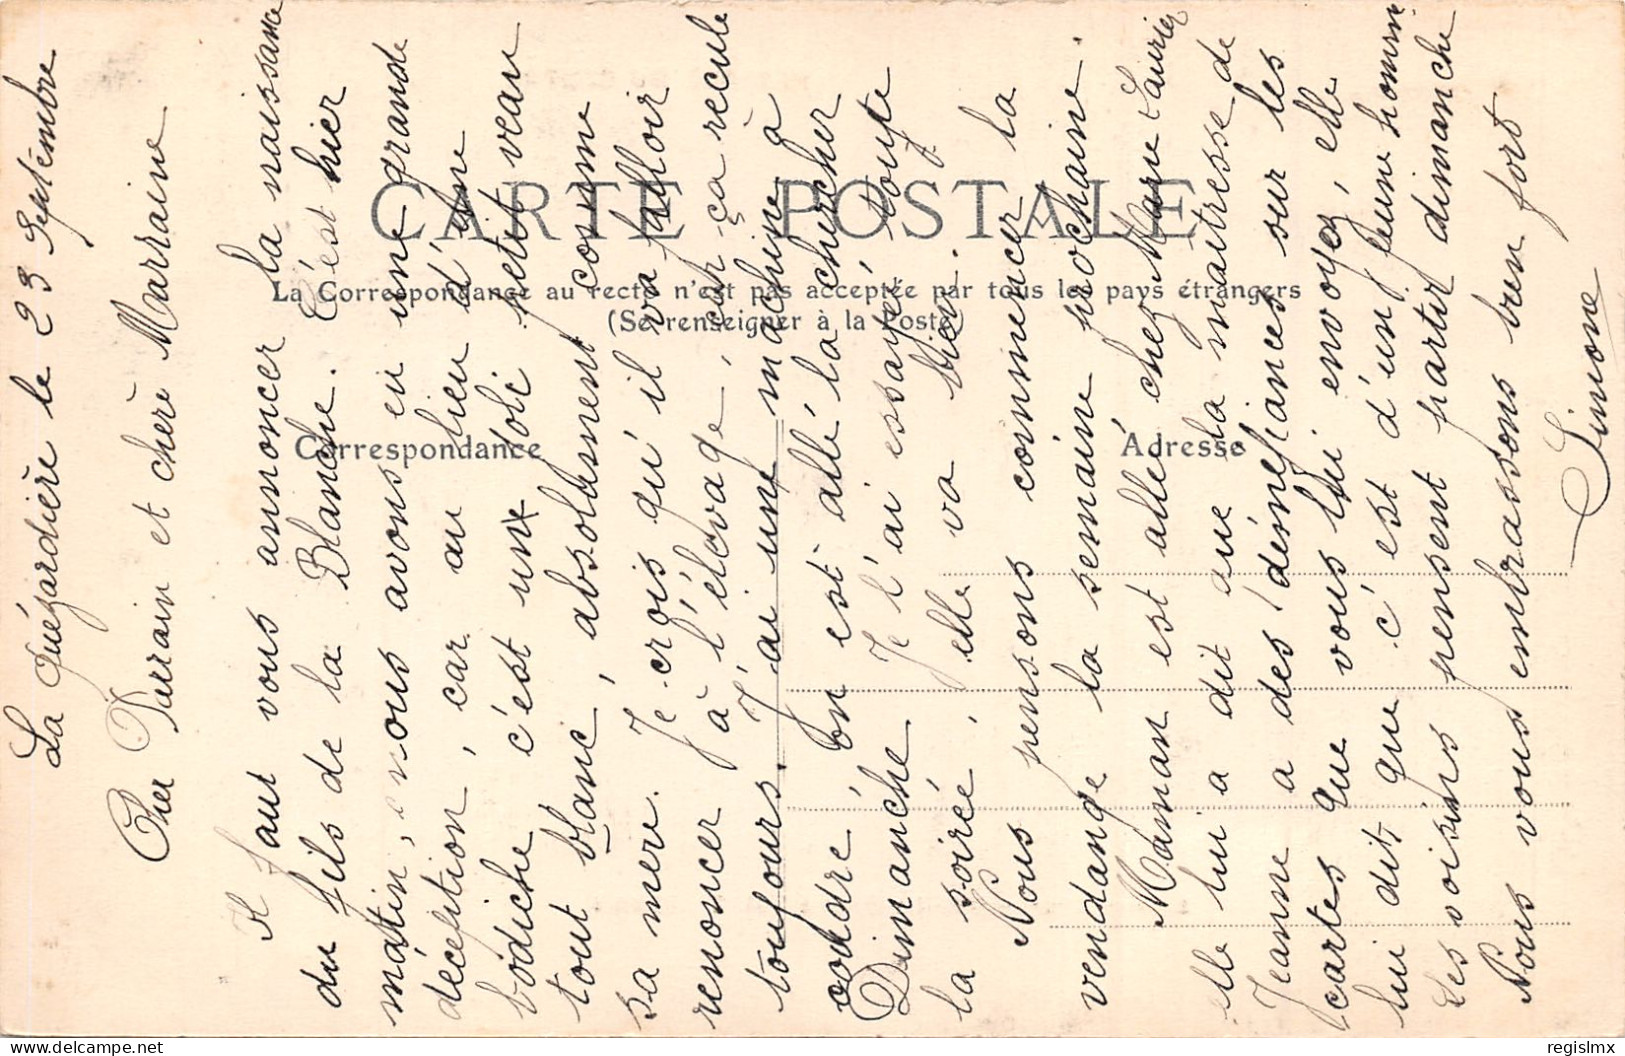 CARTE POSTALE
La Correspondance au recto n'est pas acceptée par tous les pays étrangers
(Se renseigner à la Poste)
Correspondance
Adresse
La Quézardière le 23 Septembre
Cher Parrain et chère Marraine
Il faut vous annoncer la naissance
du fils de la Blanche. C'est hier
matin, nous avons eu une grande
déception, car au lieu d'une
bodiche c'est un joli petit veau
tout blanc, absolument comme
sa mère. Je crois qu'il va falloir
renoncer à l'élevage, ça recule
toujours. J'ai une machine à
coudre on est allé la chercher
Dimanche Je l'ai essayé toute
la soirée, elle va bien.
Nous pensons commencer la
vendange la semaine prochaine.
Maman est allé chez Marie
elle lui a dit que la maitresse de
Jeanne a des méfiances sur les
cartes que vous lui envoyez, elle
lui dit que c'est d'un jeune homme
Les voisins pensent partir dimanche
Nous vous embrassons bien fort
Simone
regislmx